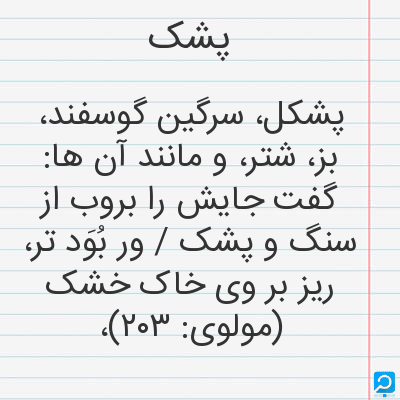 پشک
پشکل، سرگین گوسفند،
بز، شتر، و مانند آن ها:
گفت جایش را بروب از
سنگ و پشک / ور بُوَد تر،
ریز بر وی خاک خشک
(مولوی: ۲۰۳)،